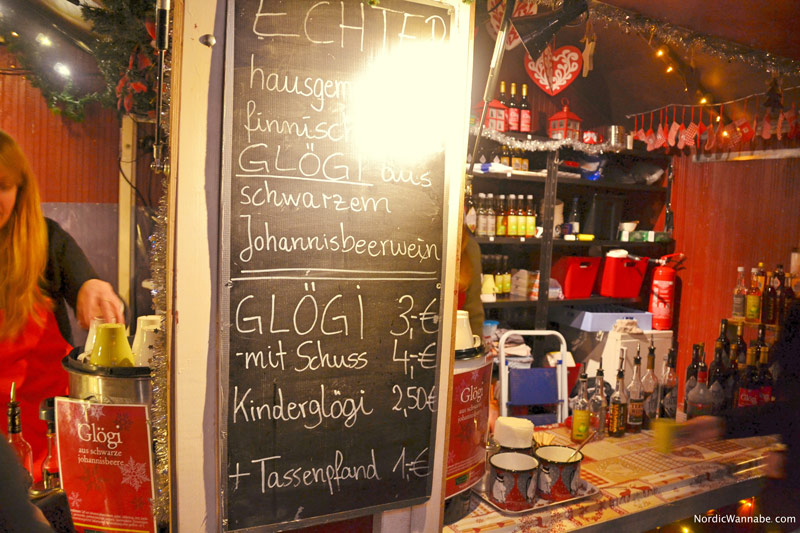 ECHTER
finnisch
GLÖGI aus
schwarzem
Johannisbeerwein
GLÖGI 3,-€
-mit Schuss 4,-€
Kinderglögi 2,50€
+ Tassenpfand 1,-€
Glögi
aus schwarze
johannisbeere
Glögi
NordicWannabe.com